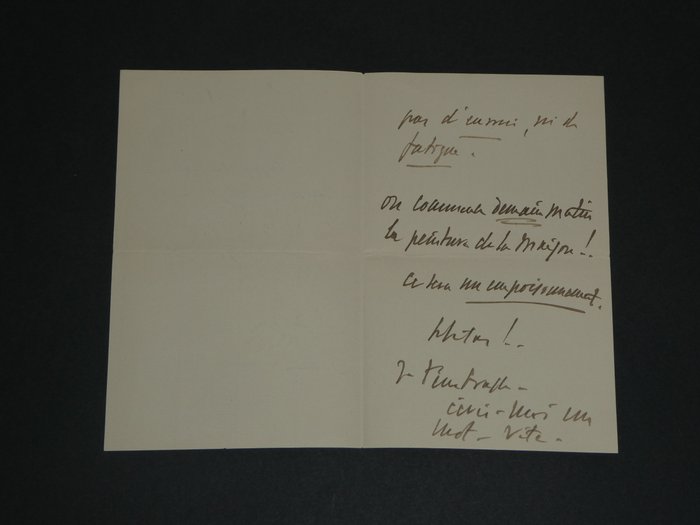 pas d'ennui, ni de
fatigue.
On commence demain matin
la peinture de la maison!.
Ce sera un empoisonnement.
!.
Je t'embrasse.
écris-moi un
mot. Vite.